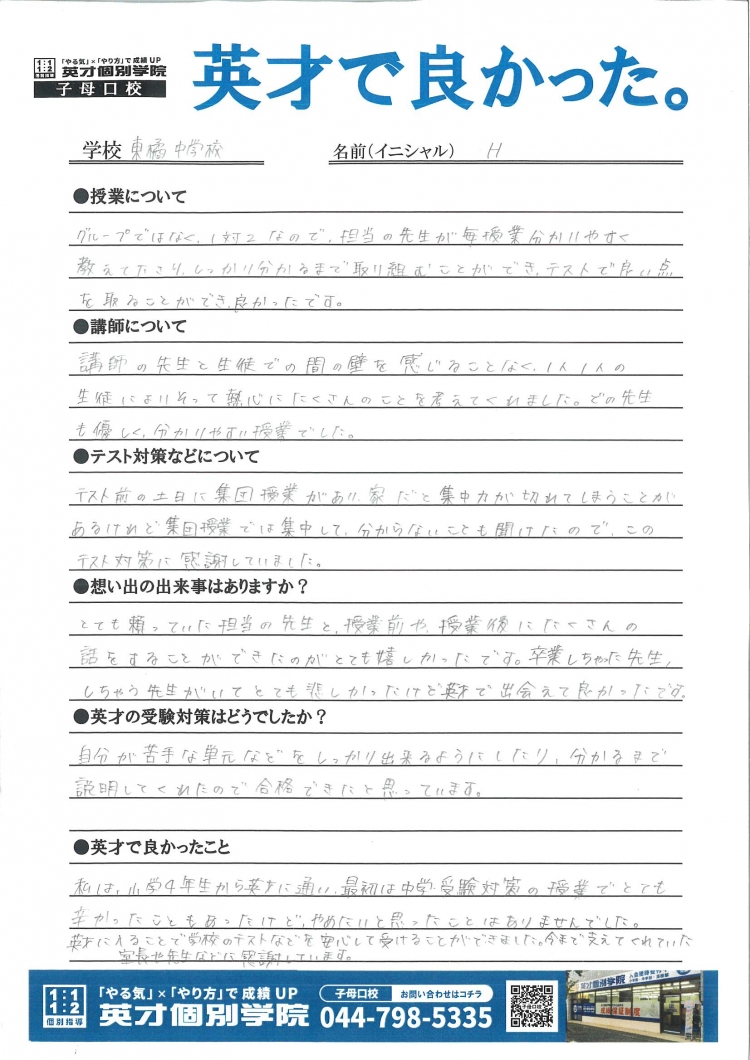 「やる気」×「やり方」で 成績 UP
1:1
1:2
個別指導
英才個別学院
子母口校
英才で良かった。
学校 東橘中学校 名前(イニシャル) H
●授業について
グループではなく、1対2なので、担当の先生が毎授業分かりやすく
教えて下さり、しっかり分かるまで取り組むことができ、テストで良い点
を取ることができ、良かったです。
●講師について
講師の先生と生徒での間の壁を感じることなく、1人1人の
生徒によりそって熱心にたくさんのことを考えてくれました。どの先生
も優しく、分かりやすい授業でした。
●テスト対策などについて
テスト前の土日に集団授業があり、家だと集中力が切れてしまうことが
あるけれど集団授業では集中して、分からないことも聞けたので、この
テスト対策に感謝していました。
●想い出の出来事はありますか？
とても頼っていた担当の先生と、授業前や、授業後にたくさんの
話をすることができたのがとても嬉しかったです。卒業しちゃった先生、
しちゃう先生がいてとても悲しかったけど英才で出会えて良かったです。
●英才の受験対策はどうでしたか？
自分が苦手な単元などをしっかり出来るようにしたり、分かるまで
説明してくれたので合格できたと思っています。
●英才で良かったこと
私は、小学4年生から英才に通い、最初は中学受験対策の授業でとても
辛かったこともあったけど、やめたいと思ったことはありませんでした。
英才に入ることで学校のテストなどを安心して受けることができました。今まで支えてくれていた
室長や先生などに感謝しています。
1:1
1:2
個別指導
「やる気」×「やり方」で 成績 UP
英才個別学院
子母口校 お問い合わせはコチラ
044-798-5335
子母口校
成績保証制度